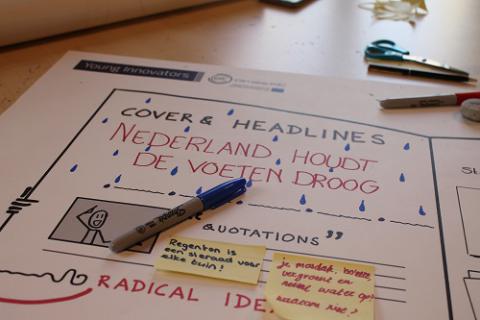 Young Innovators
COVER & HEADLINES
NEDERLAND HOUDT
DE VOETEN DROOG
"QUOTATIONS"
Regenton is
een sieraad voor
elke tuin!
je mosdak,
vergroent en
neemt water op!
waarom niet?
RADICAL IDE